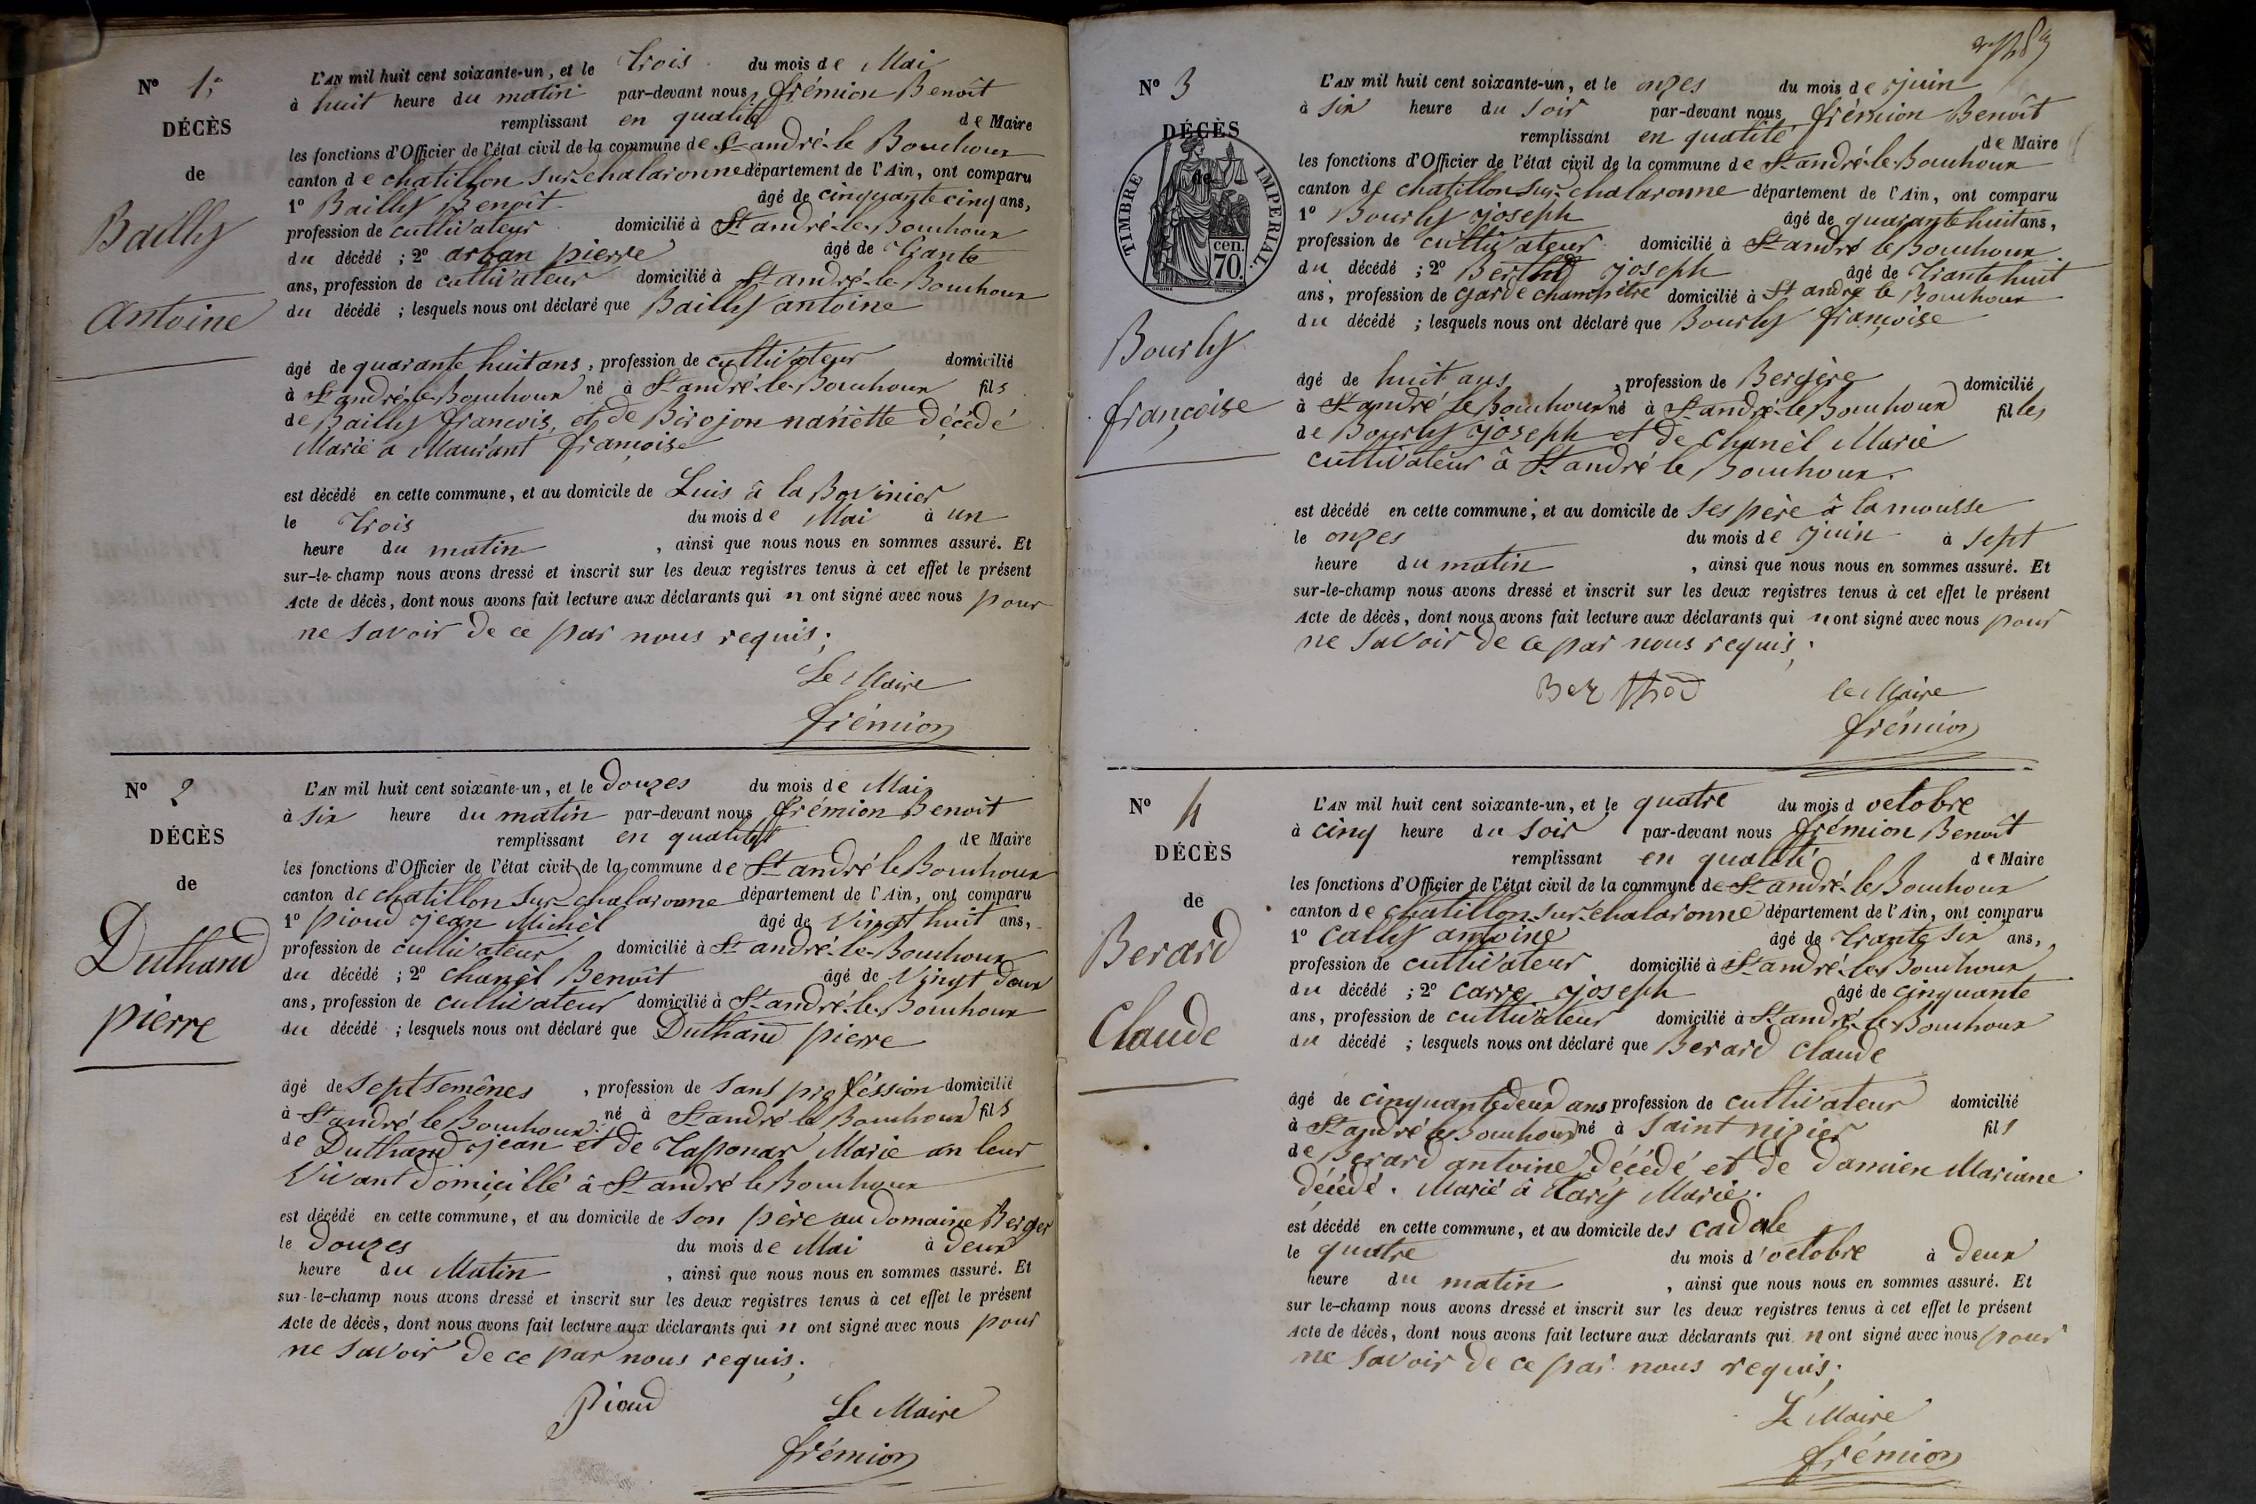 Nº 1.
DÉCÈS
de
Bailly
Antoine
L'AN mil huit cent soixante-un, et le trois du mois de Mai
à huit heure du matin par-devant nous, frémion Benoît
remplissant en qualité de Maire
les fonctions d'Officier de l'état civil de la commune de St andré-le Bouchoux
canton de chatillon sur chalaronne département de l'Ain, ont comparu
1º Bailly Benoit âgé de cinquante cinq ans,
profession de cultivateur domicilié à St andré-le-Bouchoux
du décédé ; 2º arban pierre âgé de trante
ans, profession de cultivateur domicilié à St andré-le Bouchoux
du décédé ; lesquels nous ont déclaré que Bailly antoine
âgé de quarante huit ans, profession de cultivateur domicilié
à St andré-le-Bouchoux né à St andré-le-Bouchoux fils
de Bailly francois, et de Birojon nanette décédé
Marié a Maurant françoise
est décédé en cette commune, et au domicile de Luis à la Bovinier
le trois du mois de Mai à un
heure du matin, ainsi que nous nous en sommes assuré. Et
sur-le-champ nous avons dressé et inscrit sur les deux registres tenus à cet effet le présent
Acte de décès, dont nous avons fait lecture aux déclarants qui n ont signé avec nous pour
ne savoir de ce par nous requis;
Le Maire
frémion
Nº 2
DÉCÈS
de
Duthand
pierre
L'AN mil huit cent soixante-un, et le douzes du mois de Mai
à six heure du matin par-devant nous frémion Benoit
remplissant en qualité de Maire
les fonctions d'Officier de l'état civil de la commune de St andré le Bouchoux
canton de chatillon sur chalaronne département de l'Ain, ont comparu
1º pioud jean Michel âgé de Vingt huit ans,
profession de cultivateur domicilié à St andré-le-Bouchoux
du décédé ; 2º chanèl Benoit âgé de Vingt deux
ans, profession de cultivateur domicilié à St andré-le-Bouchoux
du décédé ; lesquels nous ont déclaré que Duthand pierre
âgé de Sept semênes, profession de Sans proféssion domicilié
à St andré le Bouchoux né à St andré le Bouchoux fils
de Duthand jean et de Taponar Marie an leur
Vivant domicillé à St andré le Bouchoux
est décédé en cette commune, et au domicile de Son père au domaine Berger
le douzes du mois de Mai à deux
heure du Matin, ainsi que nous nous en sommes assuré. Et
sur-le-champ nous avons dressé et inscrit sur les deux registres tenus à cet effet le présent
Acte de décès, dont nous avons fait lecture aux déclarants qui n ont signé avec nous pour
ne savoir de ce par nous requis;
Pioud Le Maire
frémion
Nº 3
DÉCÈS
de
TIMBRE IMPERIAL
cen.
70.
Bourly
françoise
L'AN mil huit cent soixante-un, et le onzes du mois de juin
à six heure du soir par-devant nous frémion Benoît
remplissant en qualité de Maire
les fonctions d'Officier de l'état civil de la commune de St andré-le-Bouchoux
canton de chatillon-sur-chalaronne département de l'Ain, ont comparu
1º Bourly joseph âgé de quarante huit ans,
profession de cultivateur domicilié à St andré le Bouchoux
du décédé ; 2º Berthod joseph âgé de trante huit
ans, profession de garde champêtre domicilié à St andré le Bouchoux
du décédé ; lesquels nous ont déclaré que Bourly françoise
âgé de huit ans, profession de Bergère domicilié
à St andré le Bouchoux né à St andré-le Bouchoux filles
de Bourly joseph et de chanèl Marie
cultivateur à St andré le Bouchoux.
est décédé en cette commune, et au domicile de Ses père à la mousse
le onzes du mois de juin à sept
heure du matin, ainsi que nous nous en sommes assuré. Et
sur-le-champ nous avons dressé et inscrit sur les deux registres tenus à cet effet le présent
Acte de décès, dont nous avons fait lecture aux déclarants qui n ont signé avec nous pour
ne savoir de ce par nous requis;
Berthod le Maire
frémion
Nº 4
DÉCÈS
de
Berard
Claude
L'AN mil huit cent soixante-un, et le quatre du mois d octobre
à cinq heure du soir par-devant nous frémion Benoit
remplissant en qualité de Maire
les fonctions d'Officier de l'état civil de la commune de St andré-le Bouchoux
canton de chatillon-sur-chalaronne département de l'Ain, ont comparu
1º Cally antoine âgé de trante six ans,
profession de cultivateur domicilié à St andré-le Bouchoux
du décédé ; 2º Carre joseph âgé de cinquante
ans, profession de cultivateur domicilié à St andré-le-Bouchoux
du décédé ; lesquels nous ont déclaré que Berard claude
âgé de cinquante deux ans profession de cultivateur domicilié
à St andré le Bouchoux né à Saint nizier fils
de Berard antoine décédé et de damien Mariane
décédé. Marié à Marie.
est décédé en cette commune, et au domicile des cadole
le quatre du mois d'octobre à deux
heure du matin, ainsi que nous nous en sommes assuré. Et
sur le-champ nous avons dressé et inscrit sur les deux registres tenus à cet effet le présent
Acte de décès, dont nous avons fait lecture aux déclarants qui n ont signé avec nous pour
ne savoir de ce par nous requis;
Le Maire
frémion